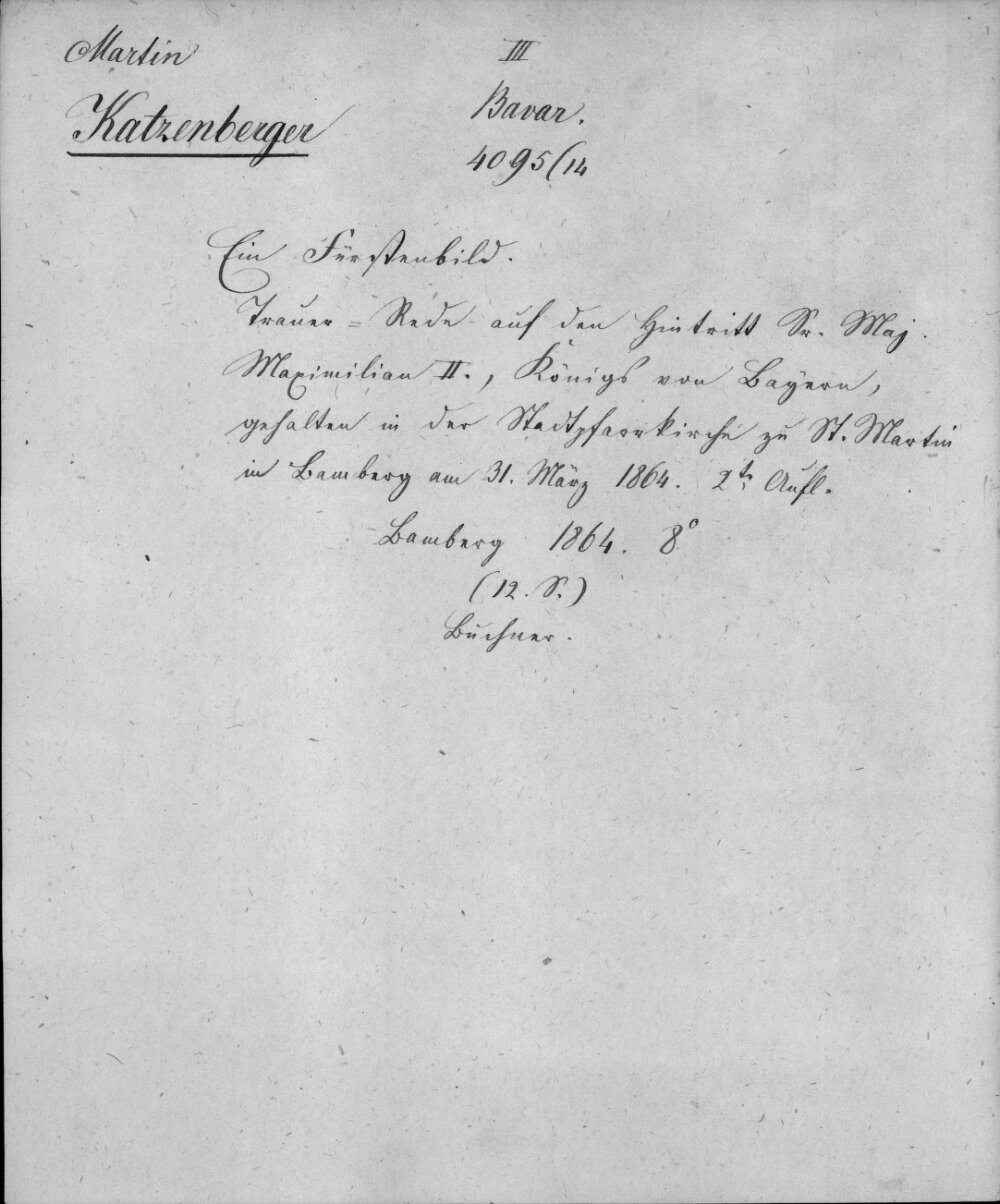 Martin
III
Katzenberger
Bavar.
4095(14
Ein Fürstenbild.
Trauer=Rede auf den Hintritt Sr. Maj.
Maximilian II., Königs von Bayern,
gehalten in der Stadtpfarrkirche zu St. Martin
in Bamberg am 31. März 1864. 2te Aufl.
Bamberg 1864. 8°
(12. S.)
Buchner.